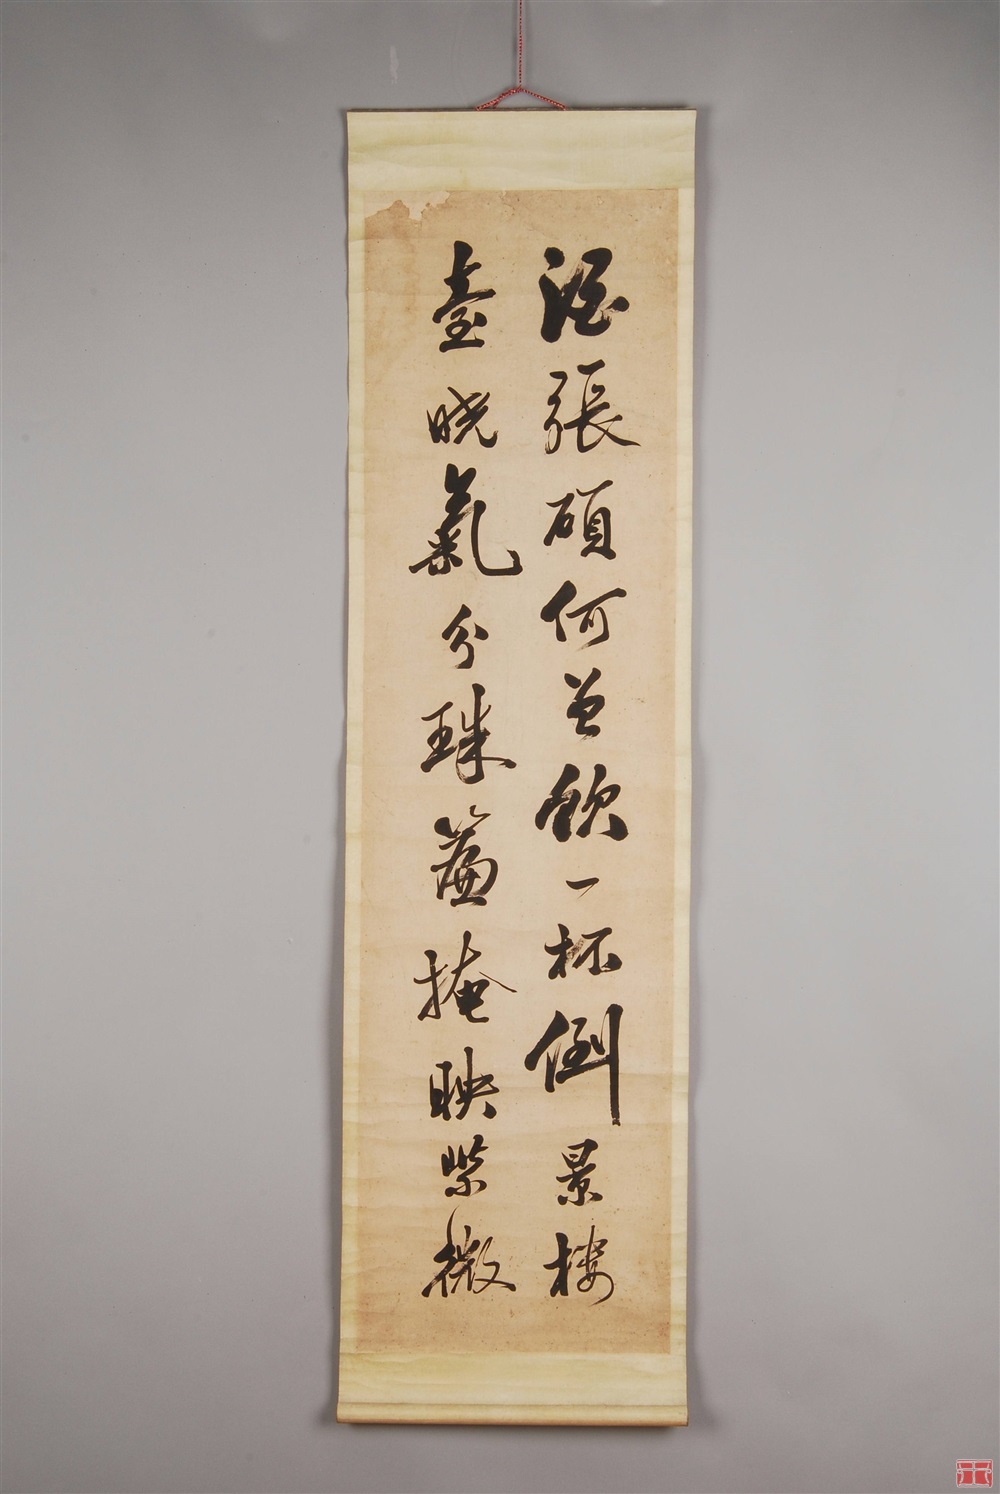 張碩何曾飲一杯倒景樓
臺曉氣分珠簾掩映紫微